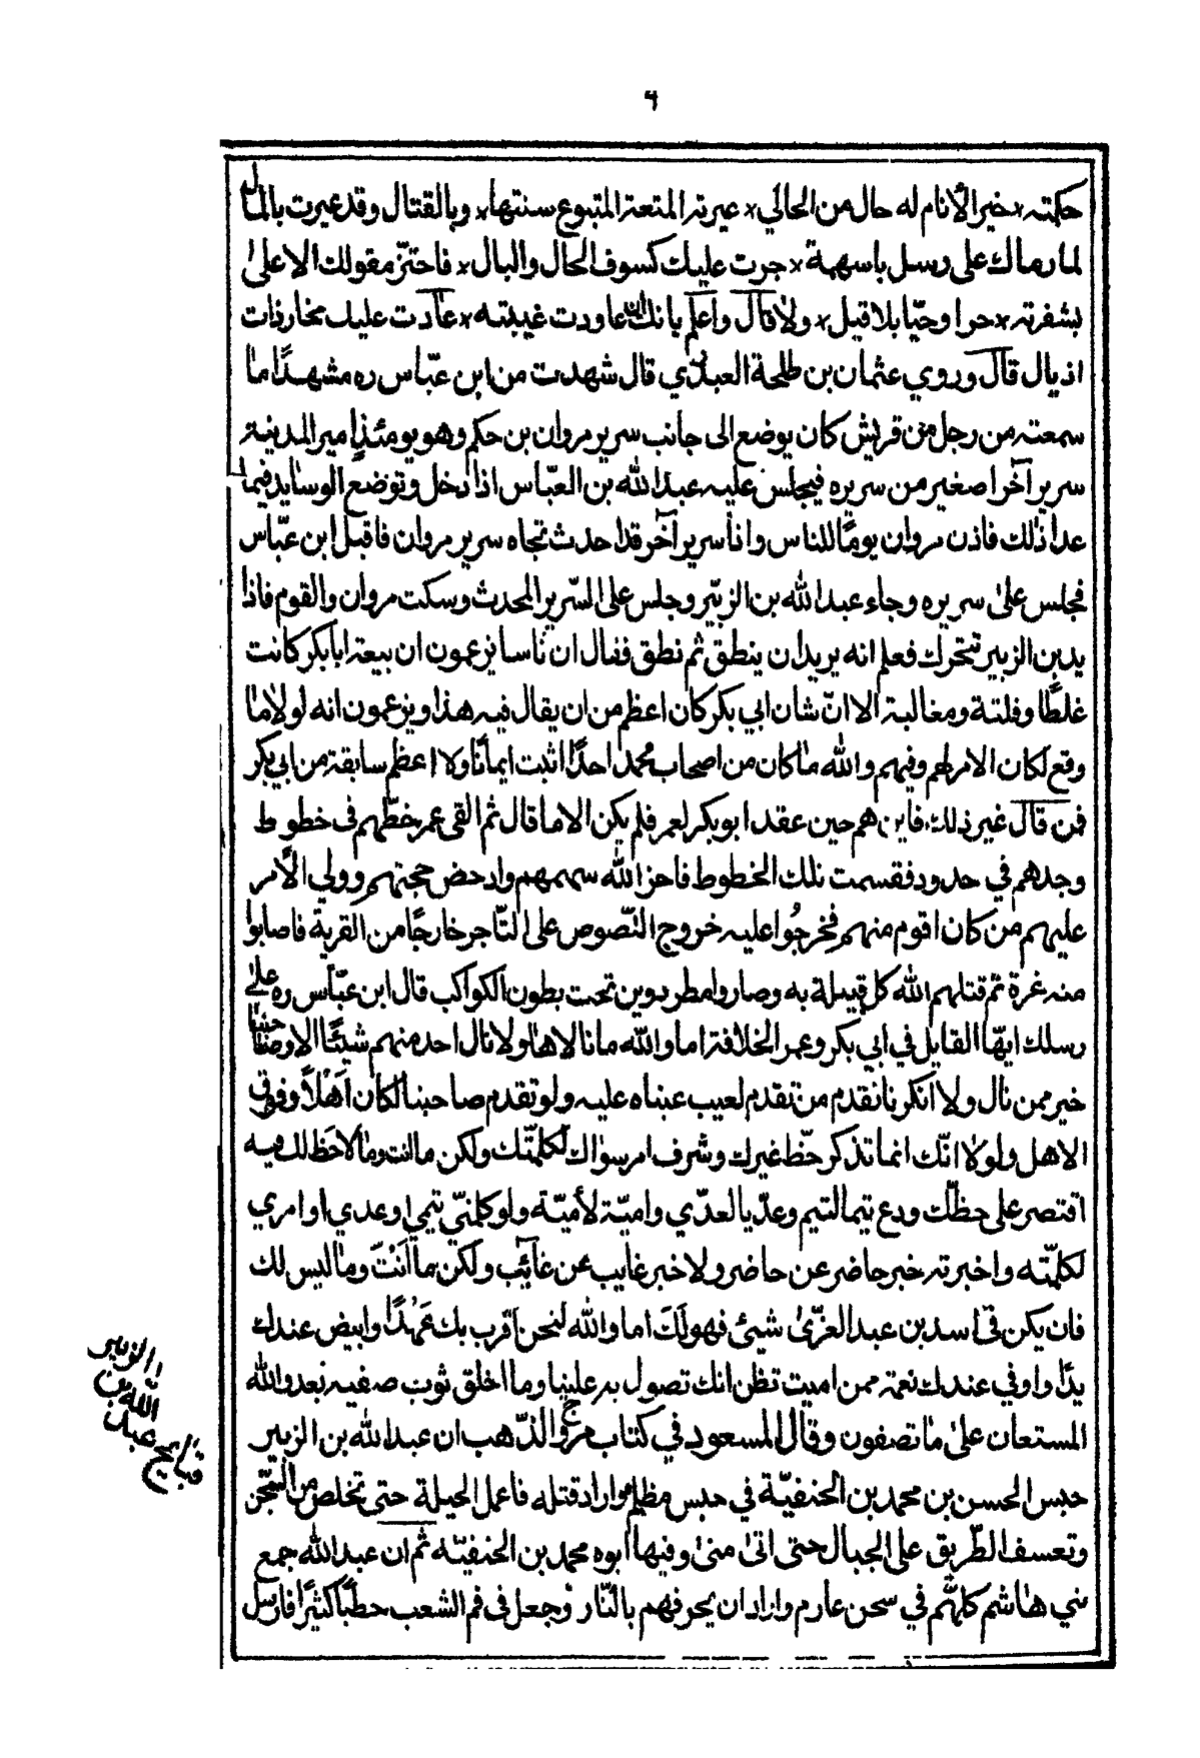 ٦
حكمته × خير الأنام له حال من الحالي × عيرته المتعة المتبوع سنتها × وبالقتال وقد عيرت بالمال
لما رماك على رسل باسهمة × جرت عليك كسوف الحال والبال × فاحتز مقولك الاعلى
بشفرته × حرا وحيّا بلا قيل × ولا قال واعلم بانك ان عاودت غيبته × عادت عليك مخازذات
اذيال قال وروي عثمان بن طلحة العبدي قال شهدت من ابن عبّاس ره مشهدًا ما
سمعته من رجل من قريش كان يوضع الى جانب سرير مروان بن حكم وهو يومئذٍ امير المدينة
سرير آخر اصغير من سريره فيجلس عليه عبد الله بن العبّاس اذا دخل وتوضع الوسايد فيما
عدا ذلك فاذن مروان يومًا للناس واذا سرير آخر قد احدث تجاه سرير مروان فاقبل ابن عبّاس
فجلس على سريره وجاء عبد الله بن الزبير وجلس على السّرير المحدث وسكت مروان والقوم فاذا
يد بن الزبير تتحرك فعلم انه يريد ان ينطق ثم نطق فقال ان ناسا يزعمون ان بيعة ابا بكر كانت
غلطًا وفلتة ومغالبة الا انّ شان ابي بكر كان اعظم من ان يقال فيه هذا ويزعمون انه لولا ما
وقع لكان الامر لهم وفيهم والله ما كان من اصحاب محمد احدًا اثبت ايمانًا ولا اعظم سابقة من ابي بكر
فمن قال غير ذلك فاين هم حين عقد ابو بكر لعمر فلم يكن الا ما قال ثم القى عمر خطّهم في خطوط
وجدهم في حدود فقسمت تلك الخطوط فاحز الله سهمهم وادحض حجتهم وولي الأمر
عليهم من كان اقوم منهم فخرجُوا عليه خروج اللّصوص على التّاجر خارجًا من القرية فاصابوا
منه غرة ثم قتلهم الله كل قتيلة به وصاروا مطرودين تحت بطون الكواكب قال ابن عبّاس ره على
رسلك ايّها القايل في ابي بكر وعمر الخلافة اما والله ما نالاها ولا نال احد منهم شيئًا الا وصاحبنا
خير ممن نال ولا انكرنا تقدم من تقدم لعيب عبناه عليه ولو تقدم صاحبنا لكان اَهْلاً وفوق
الاهل ولولا انّك انما تذكر حّظ غيرك وشرف امر سواك لكلمتّك ولكن ما انت وما لاحظ لك فيه
اقتصر على حظّك ودع تيما لتيم وعدّيا لعدّي واميّة لأميّة ولو كلمنيّ تيمي او عدي او امري
لكلمتّه واخبرته خبر حاضر عن حاضر ولا خبر غايب عن غآئب ولكن ما اَنْتَ وما ليس لك
فان يكن في اسد بن عبد العزّى شيئ فهو لَكَ اما والله لنحن اقرب بك عَهْدًا وابيض عندك
يدًا واوفي عندك نعمة ممن اميت تظن انك تصول به علينا وما اخلق ثوب صفيه بعد والله
المستعان على ما تصفون وقال المسعود في كتاب مروج الذّهب ان عبد الله بن الزبير
حبس الحسن بن محمد بن الحنفيّة في حبس مظلم واراد قتله فاعمل الحيلة حتى تخلص من السّجن
وتعسف الطّريق على الجبال حتى اتى منى وفيها ابوه محمد بن الحنفيّة ثم ان عبد الله جمع
بني هاشم كلهّم في سحن عارم واراد ان يحرقهم بالنّار وجعل في فم الشعب حطبًا كثيرًا فارسل
قبايح عبد
الله بن
الزبير